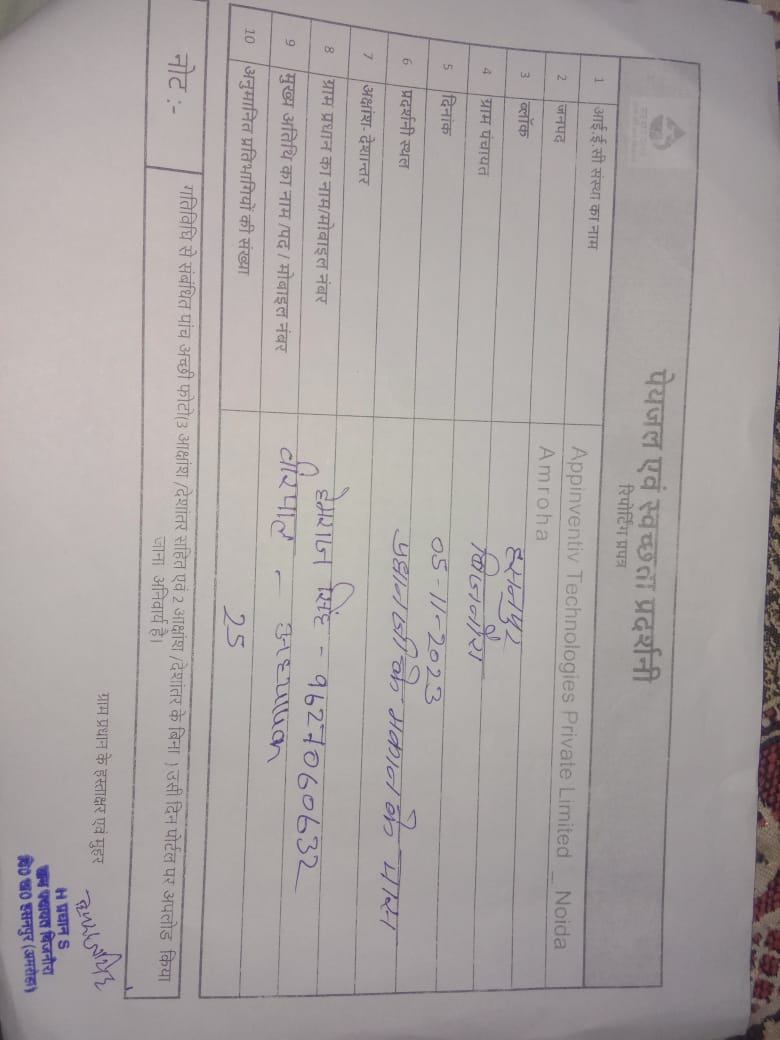 पेयजल एवं स्वच्छता प्रदर्शनी
रिपोर्टिंग प्रपत्र
1 आई.ई.सी संस्था का नाम Appinventiv Technologies Private Limited _ Noida
2 जनपद Amroha
3 ब्लॉक हसनपुर
4 ग्राम पंचायत बिजनौरा
5 दिनांक 05-11-2023
6 प्रदर्शनी स्थल प्रधान जी के मकान के पास
7 अक्षांश- देशान्तर
8 ग्राम प्रधान का नाम/मोबाइल नंबर हेमराज सिंह - 9627060632
9 मुख्य अतिथि का नाम /पद / मोबाइल नंबर वीरपाल -
10 अनुमानित प्रतिभागियों की संख्या 25
नोट :- गतिविधि से संबंधित पांच अच्छी फोटो(3 आक्षांश /देशांतर सहित एवं 2 आक्षांश /देशांतर के बिना ) उसी दिन पोर्टल पर अपलोड किया
जाना अनिवार्य है।
ग्राम प्रधान के हस्ताक्षर एवं मुहर
H प्रधान S
ग्राम पंचायत बिजनौरा
वि0 ख0 हसनपुर (अमरोहा)